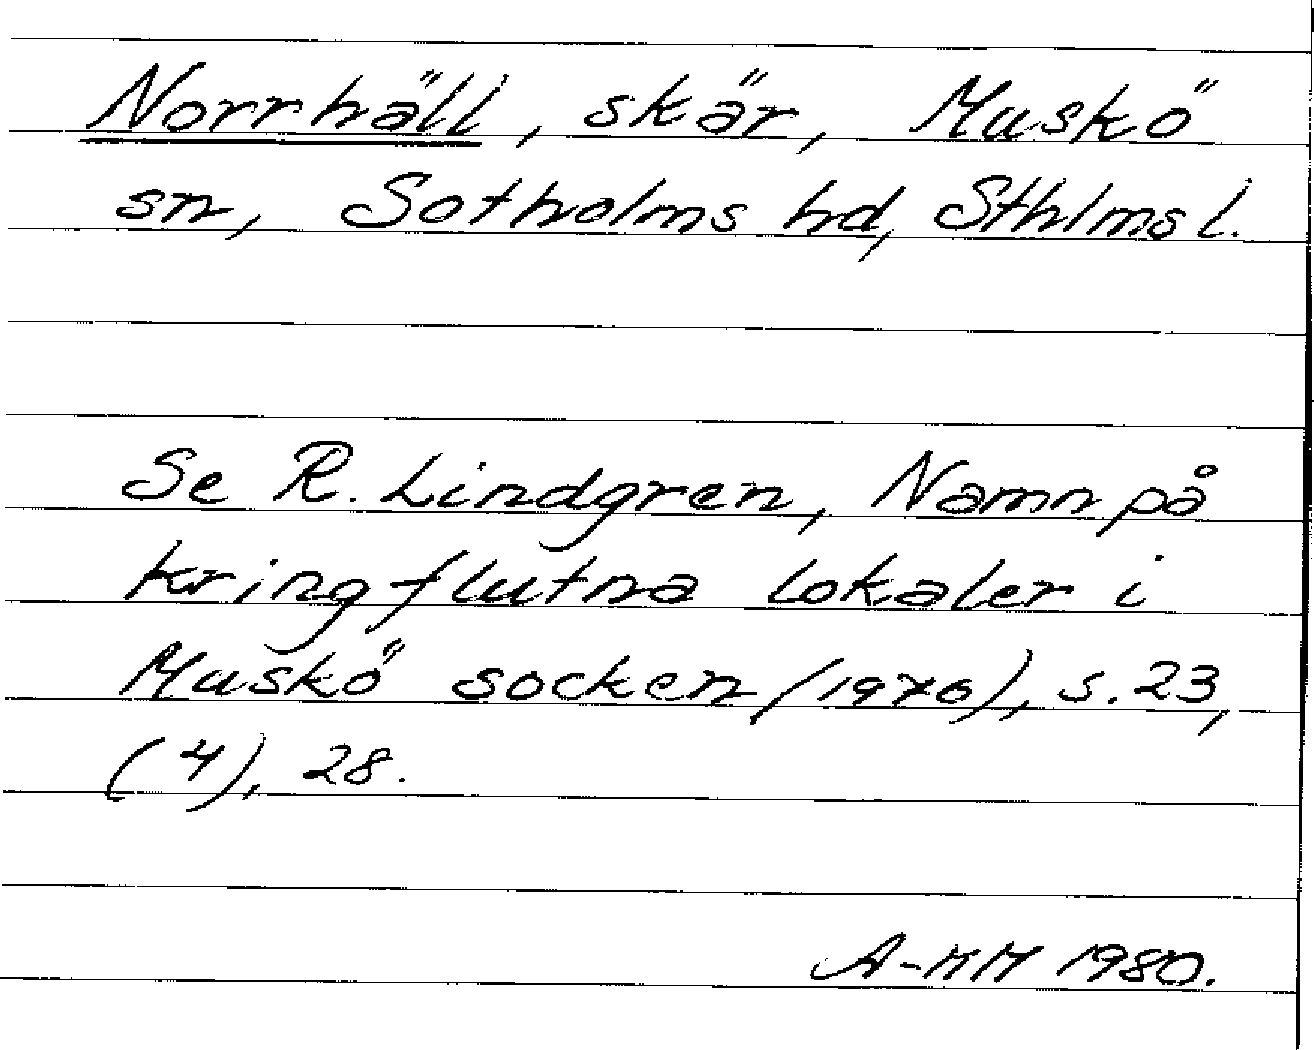 Norrhäll, skär, Muskö
sn, Sotholms hd, Sthlms l.
Se R. Lindgren, Namn på
kringflutna lokaler i
Muskö socken (1976), s. 23,
(4), 28.
A-MM 1980.